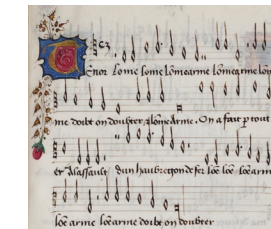 Tenor Lome lome lomearme lomearme lom
me doibt on doubter, lomearme. On a fait p tout
er Alassault dun haubregon de fer loẽ loẽ loẽarm
loẽ arme loẽarme doibt on doubter